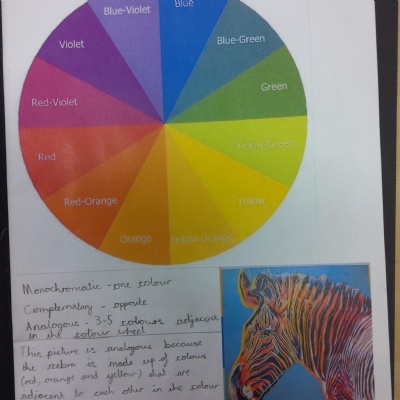 Blue
Blue-Violet
Blue-Green
Violet
Green
Red-Violet
Yellow-Green
Red
Yellow
Red-Orange
Orange
Yellow-Orange
Monochromatic - one colour
Complemetary - opposite
Analogous - 3-5 colours adjacent
in the colour wheel
This picture is analogous because
the zebra is made up of colours
(red, orange and yellow) that are
adjacent to each other in the colour